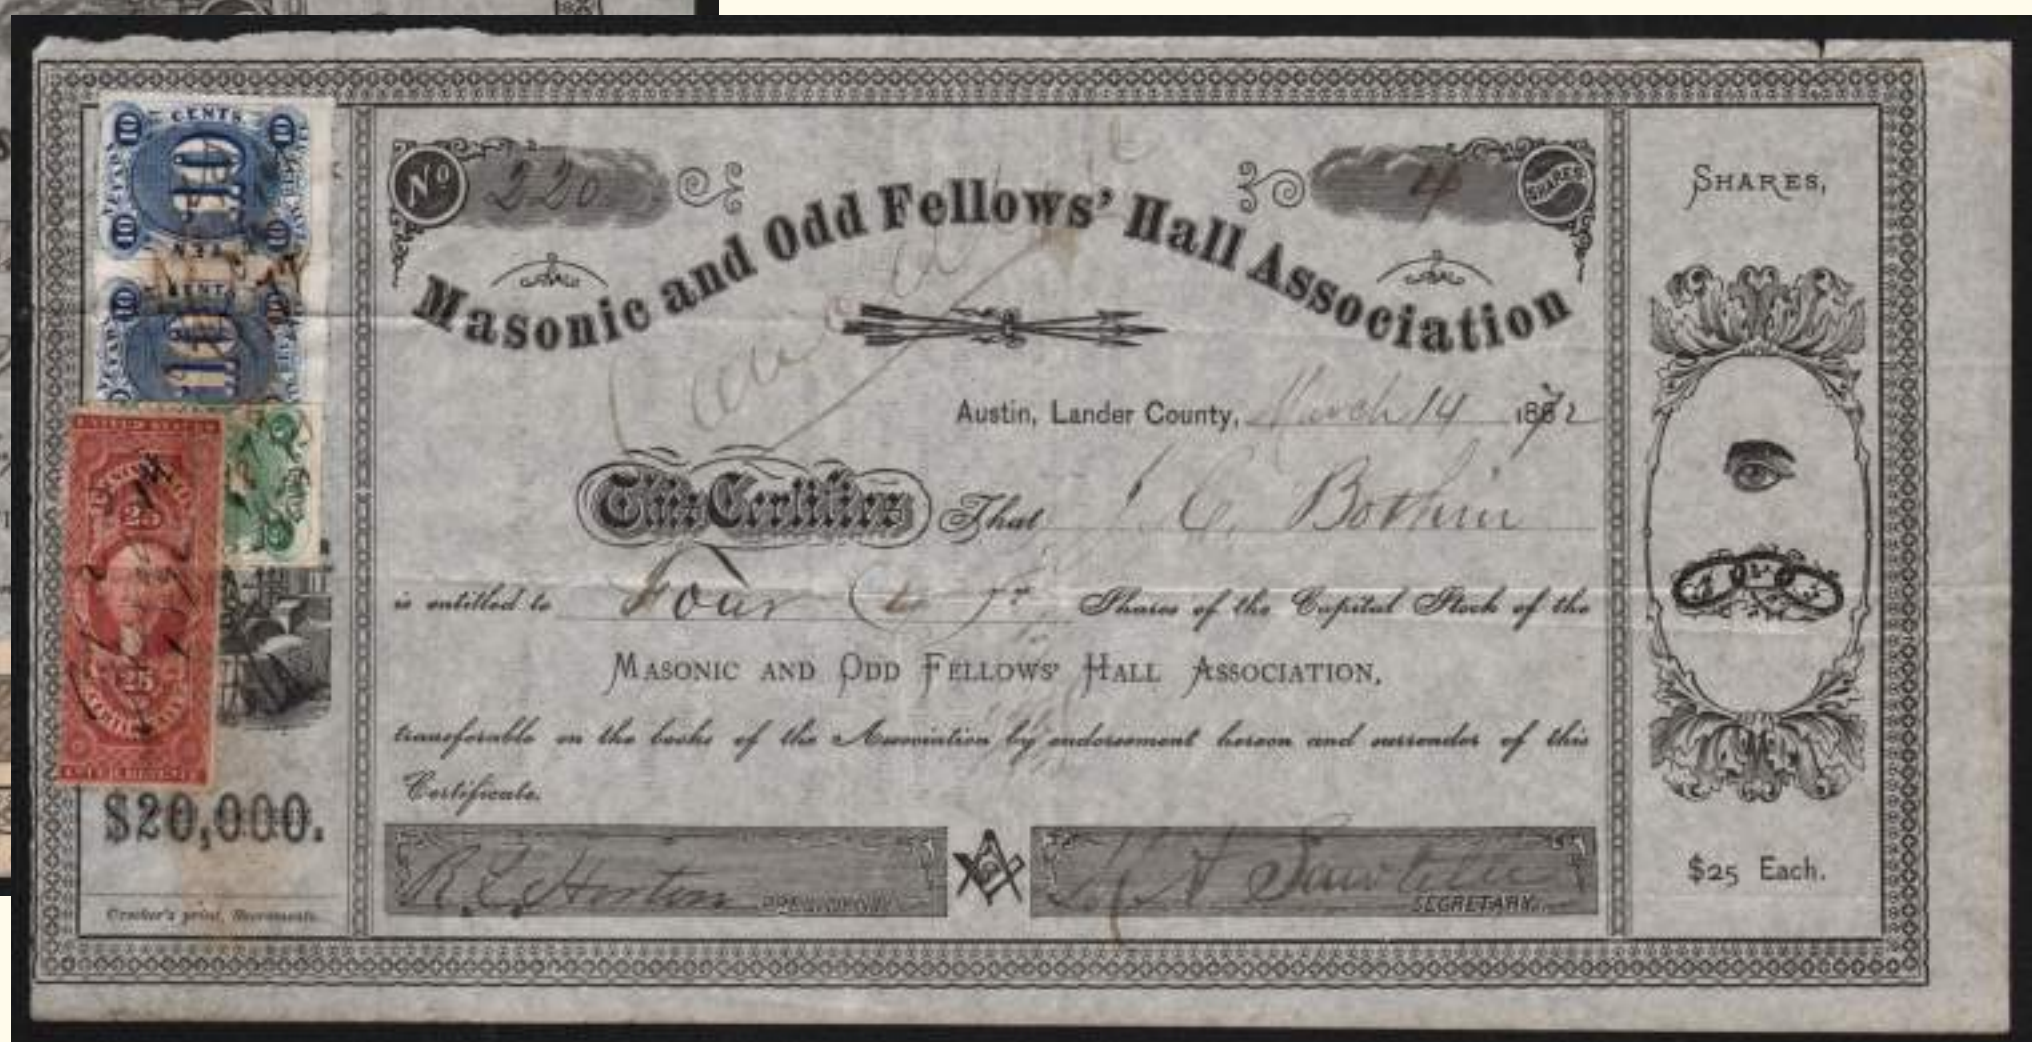 10 CENTS 10
10
10 10
10 CENTS
10
UNITED STATES
25
25
CERTIFICATE
INTER. REVENUE
$20,000.
Crocker's print, Sacramento.
No 220
4 SHARES
Masonic and Odd Fellows' Hall Association
Canceled
Austin, Lander County, March 14 1872
This Certifies That C. Bothin
is entitled to Four Shares of the Capital Stock of the
MASONIC AND ODD FELLOWS' HALL ASSOCIATION,
transferable on the books of the Association by endorsement hereon and surrender of this
Certificate.
R. L. Horton PRESIDENT
A Sawtelle SECRETARY.
SHARES,
F L T
$25 Each.